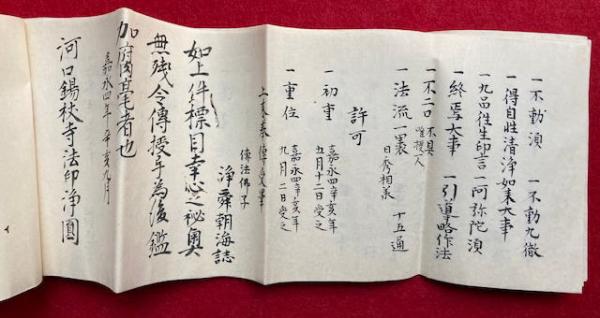 一不動湏　一不動九徹
一得自性清浄如来大事
一九品往生印言 一阿弥陀湏
一終焉大事　一引導略作法
一不二口 不具 唯授一人
一法流一裹 日秀相承 十五通
許可
一初重 嘉永四辛亥年 五月十二日受之
一重位 嘉永四辛亥年 九月二日受之
傳受畢
傳法佛子
浄舜朝海誌
如上件標目幸心之秘奥
無残令傳授于為後鑑
加
毫者也
嘉永四年 辛亥九月
河口錫杖寺法印浄圓